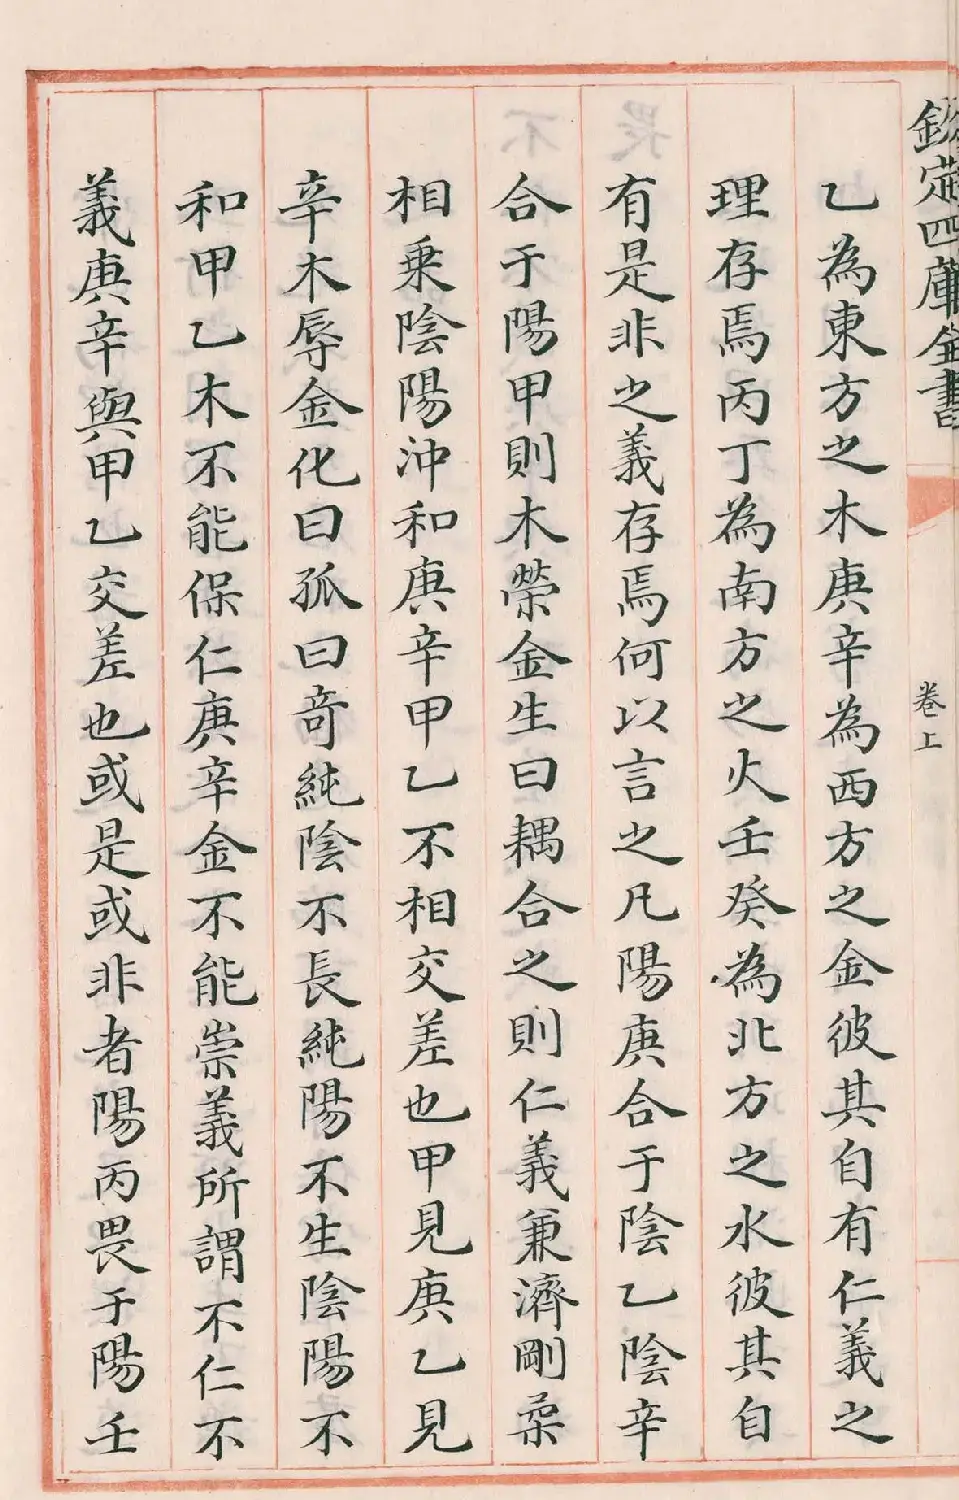 欽定四庫全書
卷上
乙為東方之木庚辛為西方之金彼其自有仁義之
理存焉丙丁為南方之火壬癸為北方之水彼其自
有是非之義存焉何以言之凡陽庚合于陰乙陰辛
合于陽甲則木榮金生曰耦合之則仁義兼濟剛柔
相乗陰陽沖和庚辛甲乙不相交差也甲見庚乙見
辛木辱金化曰孤曰竒純陰不長純陽不生陰陽不
和甲乙木不能保仁庚辛金不能崇義所謂不仁不
義庚辛與甲乙交差也或是或非者陽丙畏于陽壬